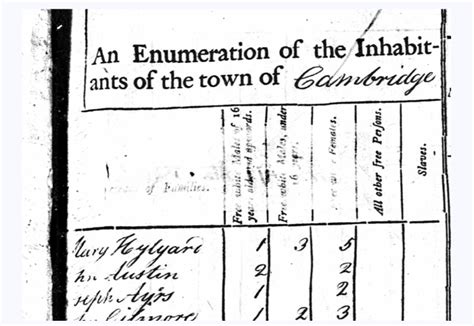 An Enumeration of the Inhabit-
ants of the town of Cambridge
of Families.
Free white Males of 16
years old and upwards.
Free white Males, under
16 years.
Females.
All other free Persons.
Slaves.
Mary Hylyard 1 3 5
Austin 2 2
Ayrs 1 2
Gilmore 1 2 3